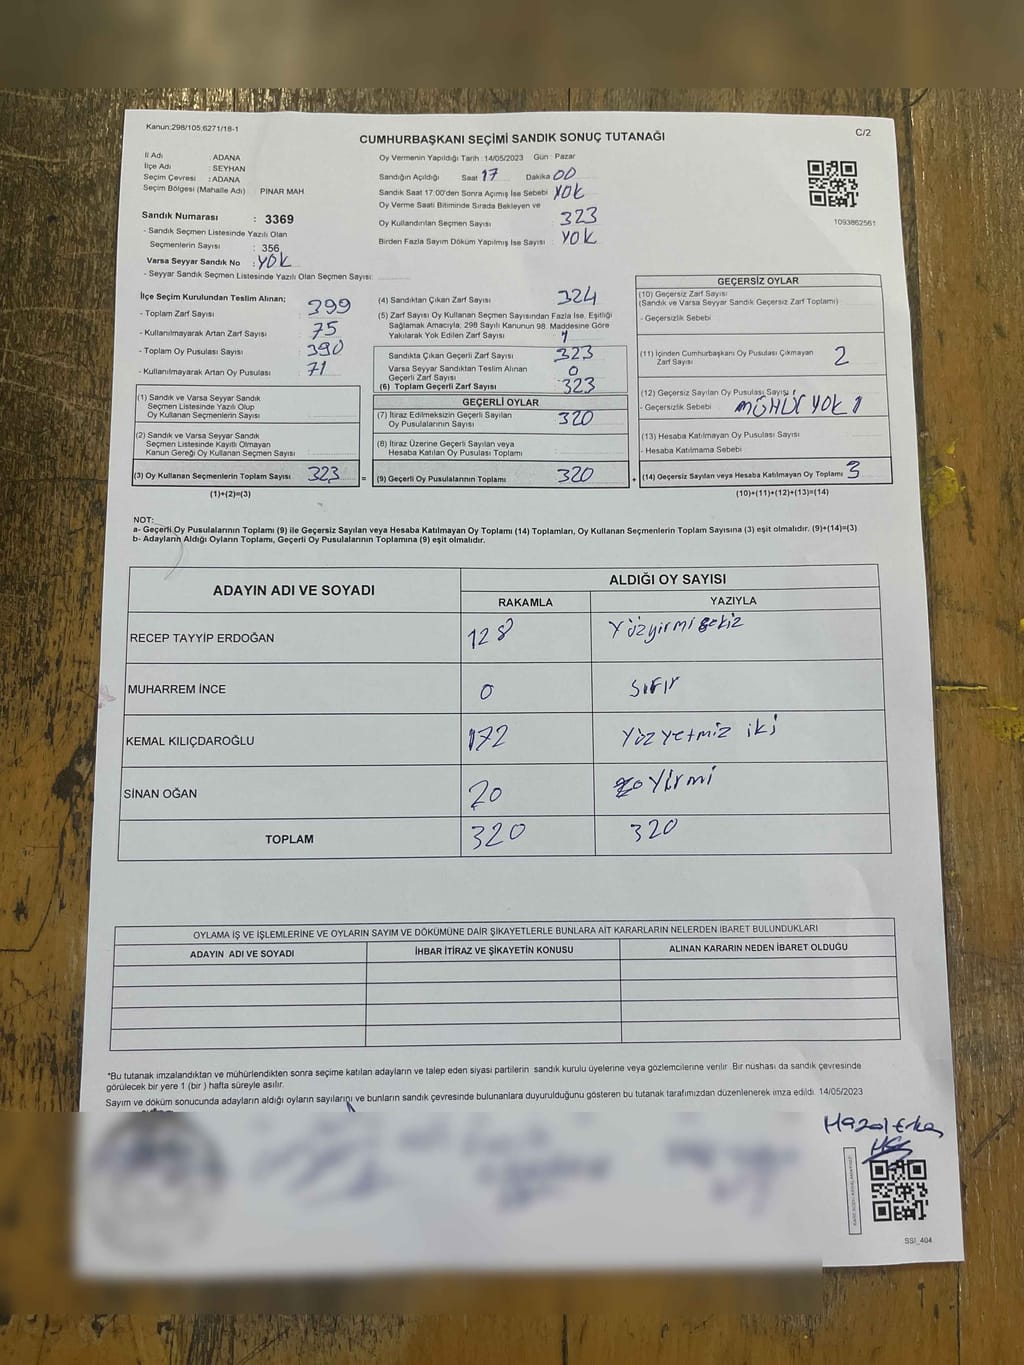 Kanun:298/105,6271/18-1
C/2
CUMHURBAŞKANI SEÇİMİ SANDIK SONUÇ TUTANAĞI
İl Adı : ADANA
İlçe Adı : SEYHAN
Seçim Çevresi : ADANA
Seçim Bölgesi (Mahalle Adı) PINAR MAH
Sandık Numarası : 3369
- Sandık Seçmen Listesinde Yazılı Olan
Seçmenlerin Sayısı : 356
Varsa Seyyar Sandık No : YOK
- Seyyar Sandık Seçmen Listesinde Yazılı Olan Seçmen Sayısı:
Oy Vermenin Yapıldığı Tarih :14/05/2023 Gün : Pazar
Sandığın Açıldığı Saat 17 Dakika 00
Sandık Saat 17 00'den Sonra Açımış İse Sebebi YOK
Oy Verme Saati Bitiminde Sırada Bekleyen ve
Oy Kullandırılan Seçmen Sayısı : 323
Birden Fazla Sayım Döküm Yapılmış İse Sayısı : YOK
1093862561
İlçe Seçim Kurulundan Teslim Alınan;
- Toplam Zarf Sayısı : 399
- Kullanılmayarak Artan Zarf Sayısı : 75
- Toplam Oy Pusulası Sayısı : 390
- Kullanılmayarak Artan Oy Pusulası : 71
(1) Sandık ve Varsa Seyyar Sandık
Seçmen Listesinde Yazılı Olup
Oy Kullanan Seçmenlerin Sayısı
(2) Sandık ve Varsa Seyyar Sandık
Seçmen Listesinde Kayıtlı Olmayan
Kanun Gereği Oy Kullanan Seçmen Sayısı
(3) Oy Kullanan Seçmenlerin Toplam Sayısı 323
(1)+(2)=(3)
(4) Sandıktan Çıkan Zarf Sayısı 324
(5) Zarf Sayısı Oy Kullanan Seçmen Sayısından Fazla İse, Eşitliği
Sağlamak Amacıyla, 298 Sayılı Kanunun 98. Maddesine Göre
Yakılarak Yok Edilen Zarf Sayısı : 1
Sandıkta Çıkan Geçerli Zarf Sayısı 323
Varsa Seyyar Sandıktan Teslim Alınan
Geçerli Zarf Sayısı 0
(6) Toplam Geçerli Zarf Sayısı 323
GEÇERLİ OYLAR
(7) İtiraz Edilmeksizin Geçerli Sayılan
Oy Pusulalarının Sayısı 320
(8) İtiraz Üzerine Geçerli Sayılan veya
Hesaba Katılan Oy Pusulası Toplamı
= (9) Geçerli Oy Pusulalarının Toplamı 320 +
GEÇERSİZ OYLAR
(10) Geçersiz Zarf Sayısı
(Sandık ve Varsa Seyyar Sandık Geçersiz Zarf Toplamı)
- Geçersizlik Sebebi
(11) İçinden Cumhurbaşkanı Oy Pusulası Çıkmayan
Zarf Sayısı 2
(12) Geçersiz Sayılan Oy Pusulası Sayısı 1
- Geçersizlik Sebebi MÜHÜR YOK 1
(13) Hesaba Katılmayan Oy Pusulası Sayısı
- Hesaba Katılmama Sebebi
(14) Geçersiz Sayılan veya Hesaba Katılmayan Oy Toplamı 3
(10)+(11)+(12)+(13)=(14)
NOT:
a- Geçerli Oy Pusulalarının Toplamı (9) ile Geçersiz Sayılan veya Hesaba Katılmayan Oy Toplamı (14) Toplamları, Oy Kullanan Seçmenlerin Toplam Sayısına (3) eşit olmalıdır. (9)+(14)=(3)
b- Adayların Aldığı Oyların Toplamı, Geçerli Oy Pusulalarının Toplamına (9) eşit olmalıdır.
ADAYIN ADI VE SOYADI
ALDIĞI OY SAYISI
RAKAMLA YAZIYLA
RECEP TAYYİP ERDOĞAN 128 Yüzyirmisekiz
MUHARREM İNCE 0 sıfır
KEMAL KILIÇDAROĞLU 172 Yüzyetmiz iki
SİNAN OĞAN 20 Yirmi
TOPLAM 320 320
OYLAMA İŞ VE İŞLEMLERİNE VE OYLARIN SAYIM VE DÖKÜMÜNE DAİR ŞİKAYETLERLE BUNLARA AİT KARARLARIN NELERDEN İBARET BULUNDUKLARI
ADAYIN ADI VE SOYADI İHBAR İTİRAZ VE ŞİKAYETİN KONUSU ALINAN KARARIN NEDEN İBARET OLDUĞU
*Bu tutanak imzalandıktan ve mühürlendikten sonra seçime katılan adayların ve talep eden siyasi partilerin sandık kurulu üyelerine veya gözlemcilerine verilir. Bir nüshası da sandık çevresinde
görülecek bir yere 1 (bir ) hafta süreyle asılır.
Sayım ve döküm sonucunda adayların aldığı oyların sayılarını ve bunların sandık çevresinde bulunanlara duyurulduğunu gösteren bu tutanak tarafımızdan düzenlenerek imza edildi. 14/05/2023
SSI_404